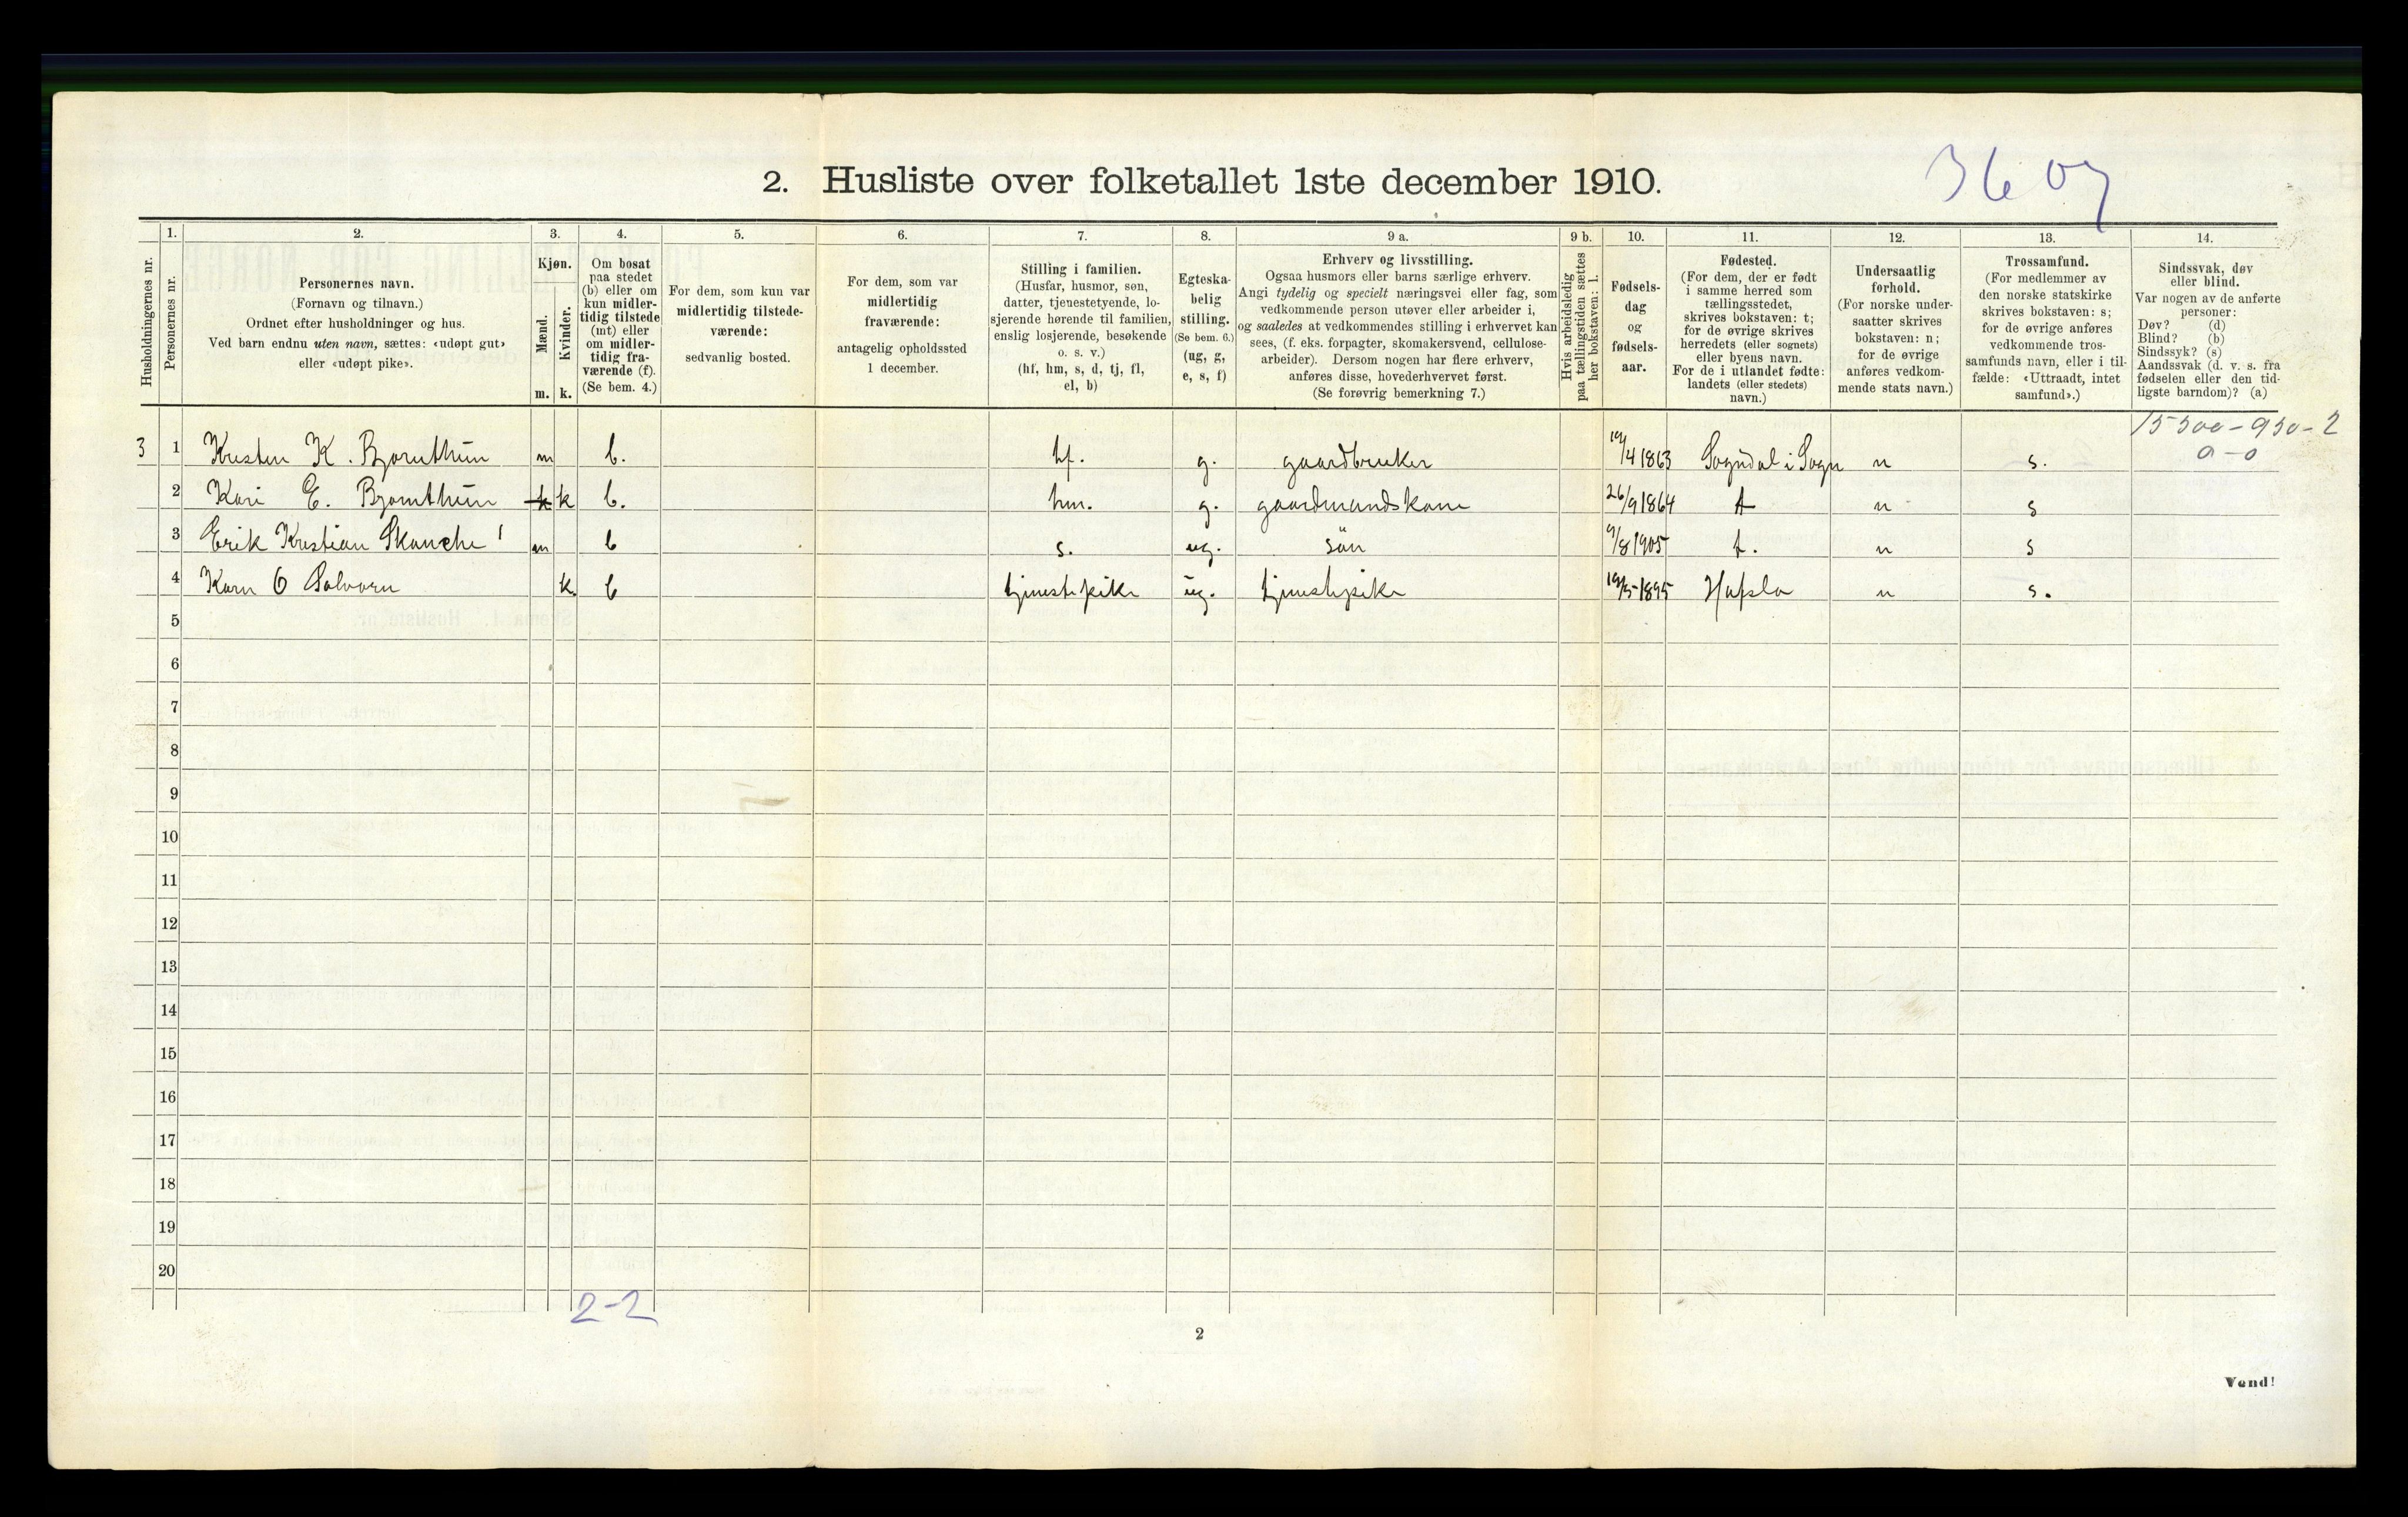 2. Husliste over folketallet 1ste december 1910.
3607
1. 2. 3. 4. 5. 6. 7. 8. 9 a. 9 b. 10. 11. 12. 13. 14.
Husholdningernes nr.
Personernes nr.
Personernes navn.
(Fornavn og tilnavn.)
Ordnet efter husholdninger og hus.
Ved barn endnu uten navn, sættes: «udøpt gut»
eller «udøpt pike».
Kjøn.
Mænd.
Kvinder.
m. k.
Om bosat
paa stedet
(b) eller om
kun midler-
tidig tilstede
(mt) eller
om midler-
tidig fra-
værende (f).
(Se bem. 4.)
For dem, som kun var
midlertidig tilstede-
værende:
sedvanlig bosted.
For dem, som var
midlertidig
fraværende:
antagelig opholdssted
1 december.
Stilling i familien.
(Husfar, husmor, søn,
datter, tjenestetyende, lo-
sjerende hørende til familien,
enslig losjerende, besøkende
o. s. v.)
(hf, hm, s, d, tj, fl,
el, b)
Egteska-
belig
stilling.
(Se bem. 6.)
(ug, g,
e, s, f)
Erhverv og livsstilling.
Ogsaa husmors eller barns særlige erhverv.
Angi tydelig og specielt næringsvei eller fag, som
vedkommende person utøver eller arbeider i,
og saaledes at vedkommendes stilling i erhvervet kan
sees, (f. eks. forpagter, skomakersvend, cellulose-
arbeider). Dersom nogen har flere erhverv,
anføres disse, hovederhvervet først.
(Se forøvrig bemerkning 7.)
Hvis arbeidsledig
paa tællingstiden sættes
her bokstaven: l.
Fødsels-
dag
og
fødsels-
aar.
Fødested.
(For dem, der er født
i samme herred som
tællingsstedet,
skrives bokstaven: t;
for de øvrige skrives
herredets (eller sognets)
eller byens navn.
For de i utlandet fødte:
landets (eller stedets)
navn.)
Undersaatlig
forhold.
(For norske under-
saatter skrives
bokstaven: n;
for de øvrige
anføres vedkom-
mende stats navn.)
Trossamfund.
(For medlemmer av
den norske statskirke
skrives bokstaven: s;
for de øvrige anføres
vedkommende tros-
samfunds navn, eller i til-
fælde: «Uttraadt, intet
samfund».)
Sindssvak, døv
eller blind.
Var nogen av de anførte
personer:
Døv? (d)
Blind? (b)
Sindssyk? (s)
Aandssvak (d. v. s. fra
fødselen eller den tid-
ligste barndom)? (a)
15500-950-2
0-0
3 1 Kristen K. Bjornthun m b. hf. g. gaardbruker 19/4 1863 Sogndal i Sogn n s.
2 Kari E. Bjornthun k k b. hm. g. gaardmandskone 26/9 1864 t n s
3 Erik Kristian Skanche m b s. ug. sön 9/8 1905 t. n s
4 Karn O Solvorn k. b tjenestepike ug. tjenestepike 19/5-1895 Hafslo n s.
5
6
7
8
9
10
11
12
13
14
15
16
17
18
19
20
2-2
2
Vend!